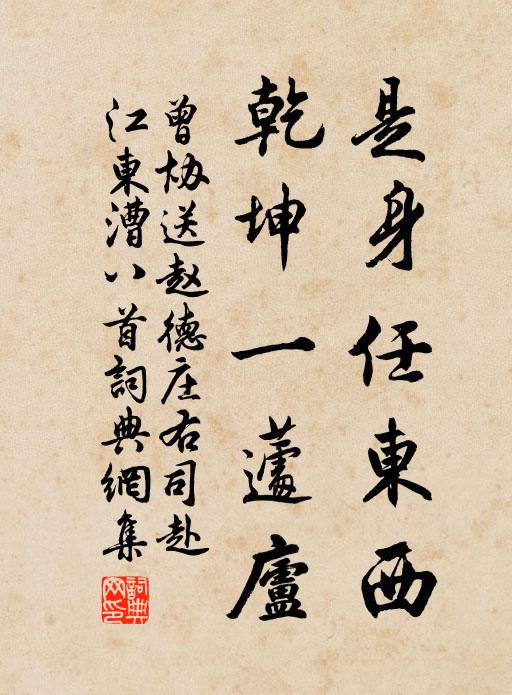 是身任東西
乾坤一蘧廬
曾协送赵德庄右司赴
江東漕八首詞典網集
詞典网印